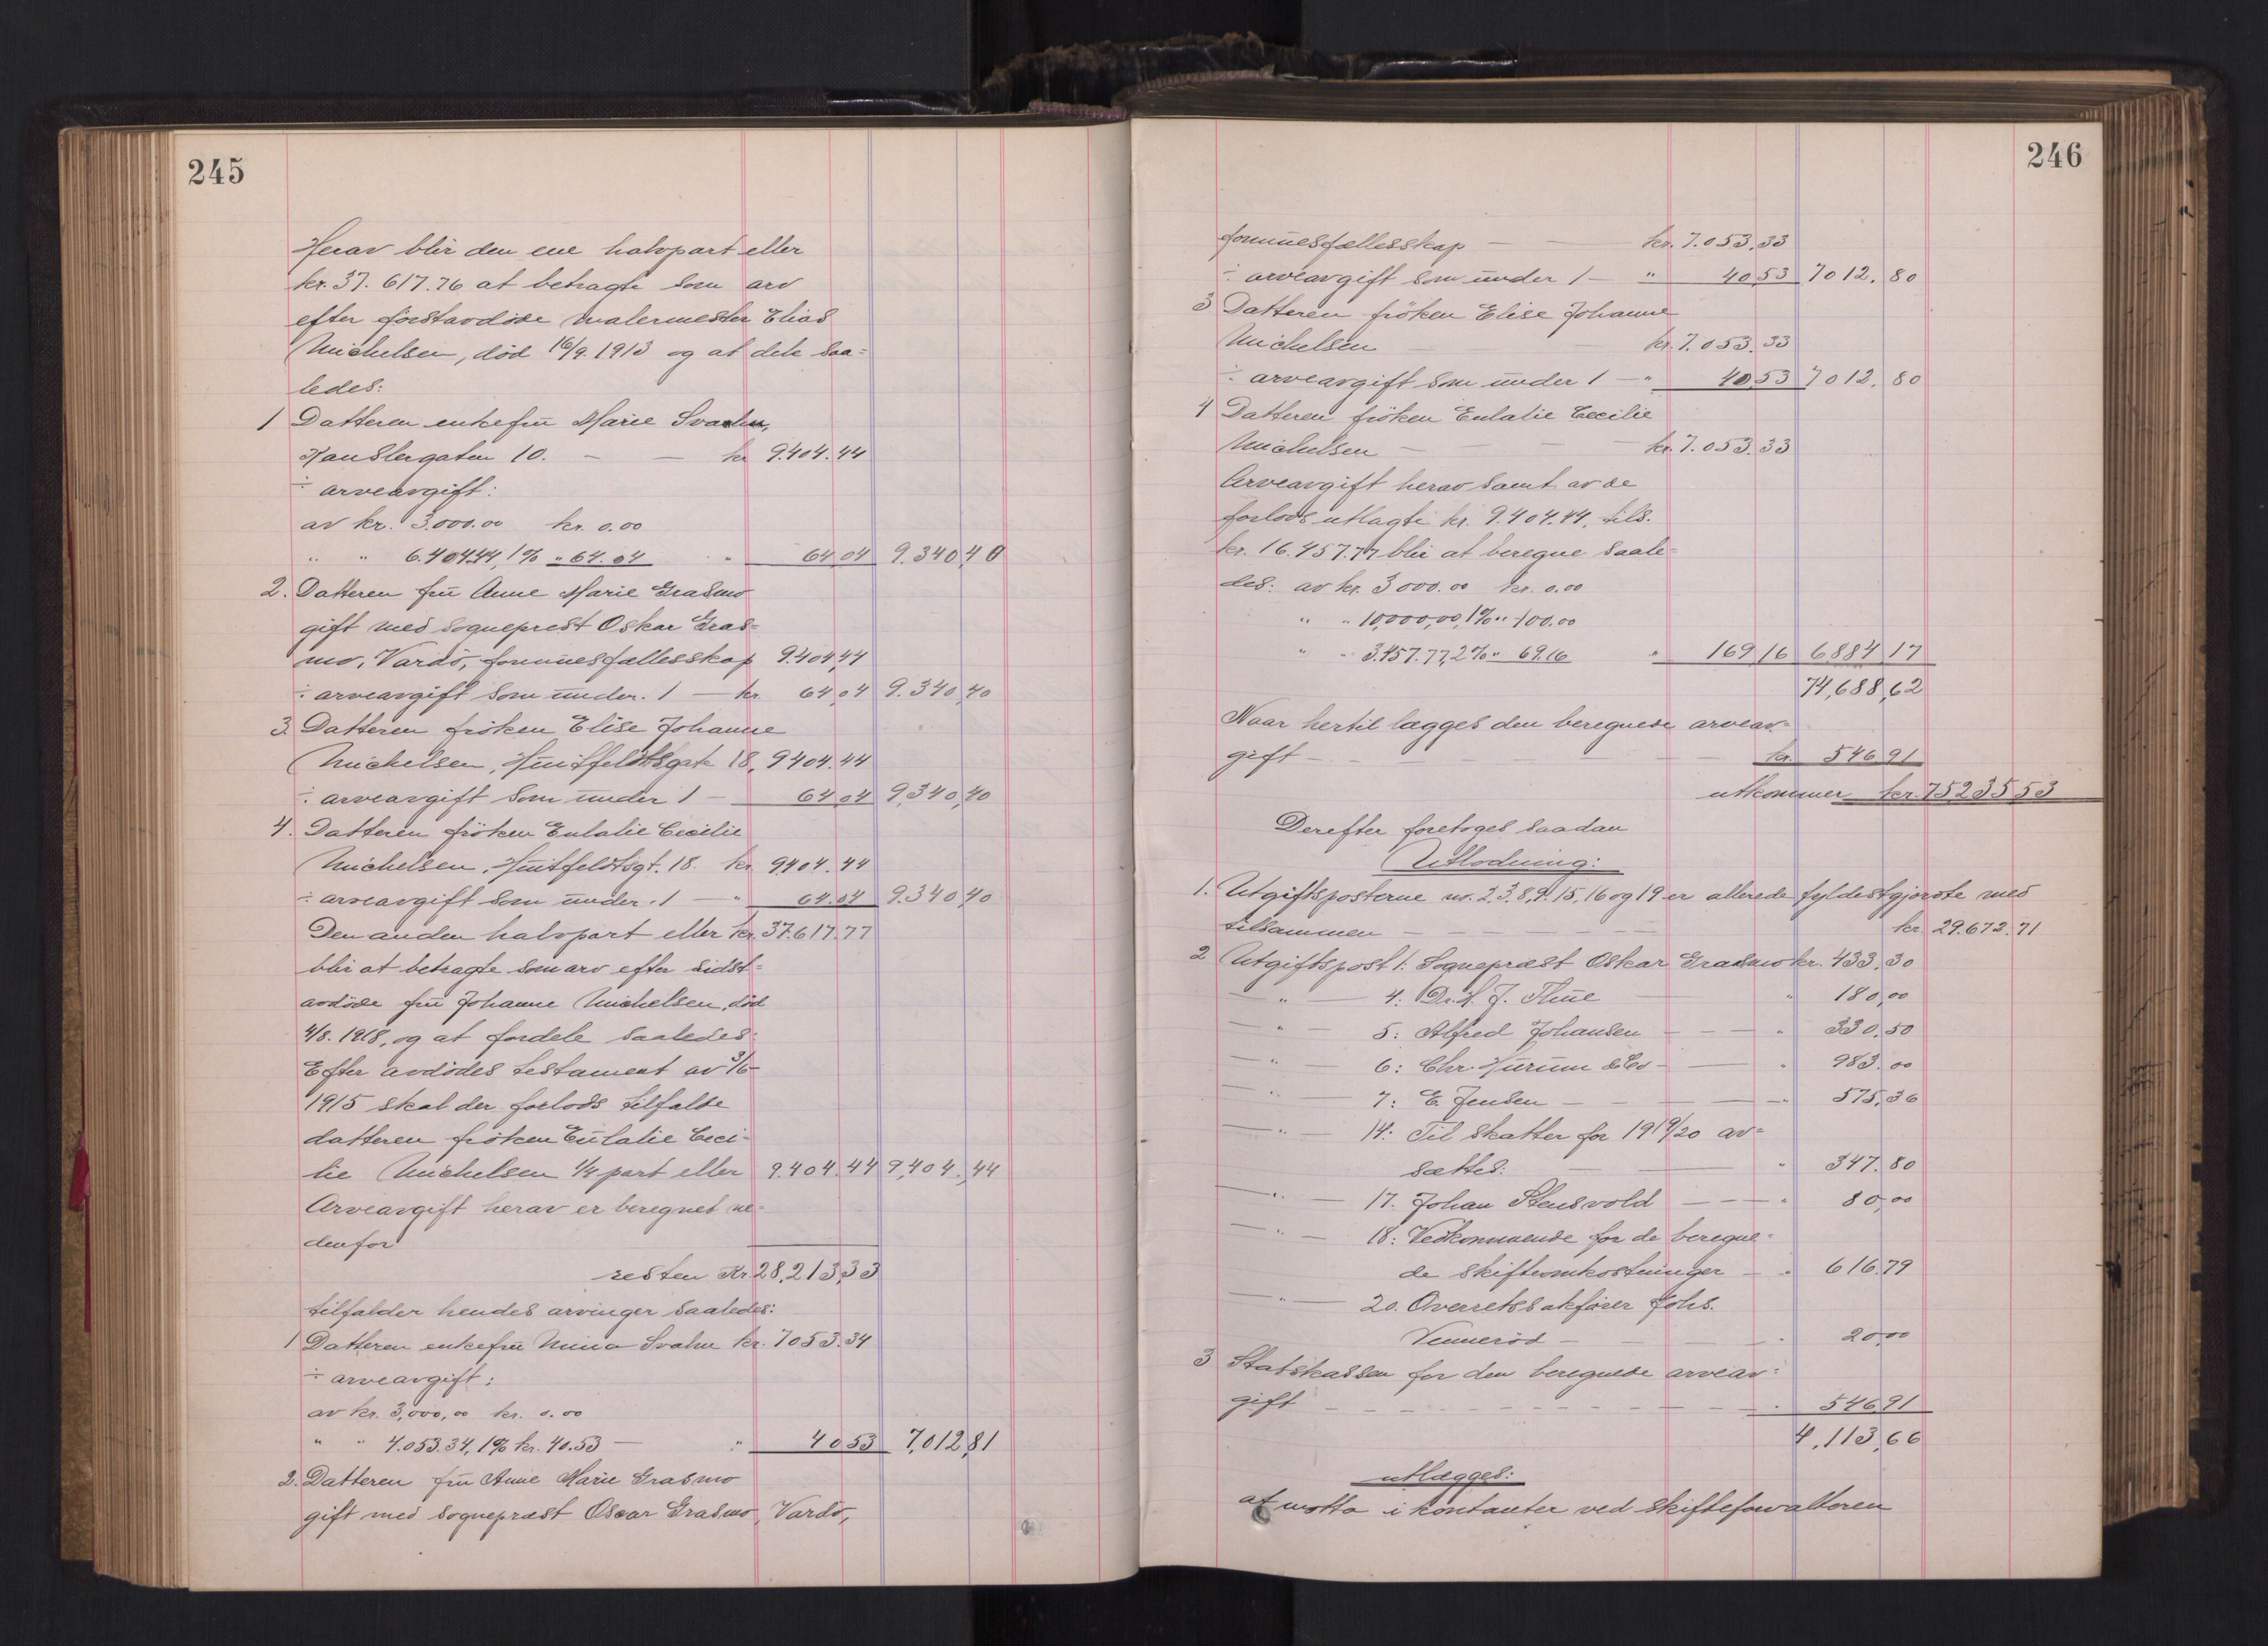 245
Herav blir den ene halvpart eller
kr. 37.617.76 at betragte som arv
efter førstavdøde malermester Elias
Michelsen, død 16/9. 1913 og at dele saa=
ledes:
1 Datteren enkefru Marie Svahn,
Hauslergaten 10. — — kr 9.404.44
÷ arveavgift:
av kr. 3.000.00 kr. 0.00
" " 6.404.44, 1% " 64.04 " 64,04 9.340,40
2. Datteren fru Anne Marie Grasmo
gift med sogneprest Oskar Gras=
mo, Vardö, formuesfællesskap 9.404,44
÷ arveavgift som under. 1 — kr. 64,04 9.340,40
3. Datteren fröken Elise Johanne
Michelsen, Huitfeldtsgate 18, 9404.44
÷ arveavgift som under 1 — 64,04 9,340,40
4. Datteren fröken Eulalie Cecilie
Michelsen, Huitfeldtsgt. 18. kr. 9404.44
÷ arveavgift som under. 1 — " 64.04 9.340,40
Den anden halvpart eller kr. 37.617.77
blir at betragte som arv efter sidst=
avdöde fru Johanne Michelsen, död
4/8. 1918, og at fordele saaledes:
Efter avdödes testament av 3/6-
1915 skal der forlods tilfalde
datteren fröken Eulalie Ceci=
lie Michelsen 1/4 part eller 9.404.44 9,404,44
Arveavgift herav er beregnet ne=
denfor
resten Kr. 28,213,33
tilfalder hendes arvinger saaledes:
1 Datteren enkefru Mina Svahn kr. 7053.34
÷ arveavgift:
av kr. 3,000,00 kr. 0.00
" " 4.053.34, 1% kr. 40.53 — " 40 53 7,012,81
2. Datteren fru Anne Marie Grasmo
gift med sogneprest Oscar Grasmo, Vardö,
246
formuesfællesskap — — kr. 7.053,33
÷ arveavgift som under 1 — " 40 53 7012.80
3 Datteren fröken Elise Johanne
Michelsen — kr. 7.053.33
÷ arveavgift som under 1 — " 40,53 7012.80
4 Datteren fröken Eulalie Cecilie
Michelsen — — — kr. 7.053.33
Arveavgift herav samt av de
forlods utlagte kr. 9.404.44, tils.
kr. 16.457.77 blir at beregne saale=
des: av kr. 3000.00 kr. 0.00
" " 10,000,00, 1% " 100.00
" " 3.457.77, 2% " 69.16 " 169 16 6884 17
74,688,62
Naar hertil lægges den beregnede arveav=
gift — — kr. 546 91
utkommer kr. 75235 53
Derefter foretoges saadan
Utlodning:
1. Utgiftsposterne nr. 2, 3, 8, 9. 15, 16 og 19 er allerede fyldestgjorte med
tilsammen — — — kr. 29.672.71
2 Utgiftspost 1: Sogneprest Oskar Grasmo kr. 433,30
— " — 4: Dr. H. J. Thue — " 180,00
— " — 5: Alfred Johansen — — " 330,50
— " — 6: Chr. Hurum & Co — — " 983.00
— " — 7: E. Jensen — — — " 575,36
— " — 14: Til skatter for 1919/20 av=
sættes: — — " 347.80
— " — 17. Johan Stensvold — — " 80,00
— " — 18: Vedkommende for de beregne=
de skifteomkostninger — " 616.79
— " — 20. Overretssakfører Johs.
Vennerød — " 20,00
3 Statskassen for den beregnede arveav=
gift — — — " 546 91
4,113,66
utlægges:
at motta i kontanter ved skifteforvalteren